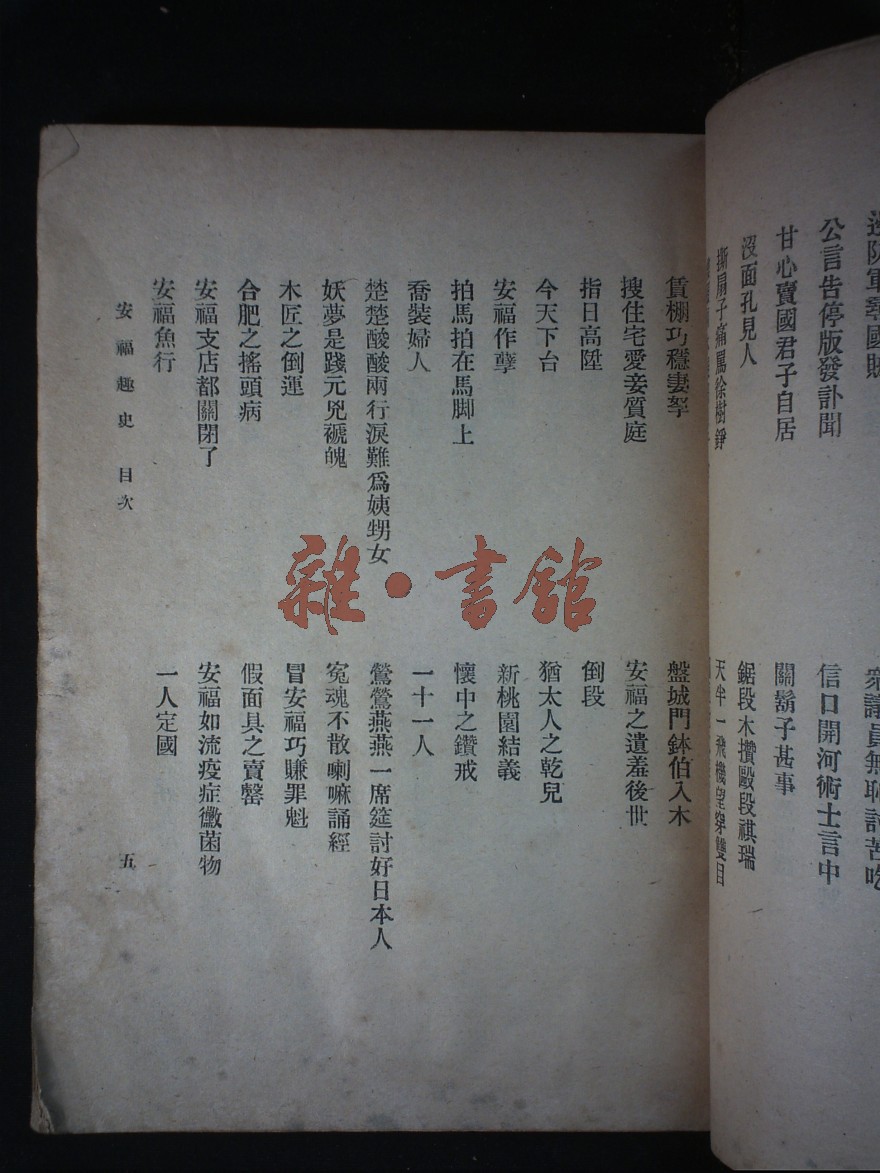 公言告停版發訃聞
信口開河術士言中
甘心賣國君子自居
關鬍子甚事
沒面孔見人
鋸段木攢毆段祺瑞
撕扇子痛罵徐樹錚
天半一飛機望穿雙目
賃棚巧穩妻孥
盤城門鉢伯入木
搜住宅愛妾質庭
安福之遺羞後世
指日高陞
倒段
今天下台
猶太人之乾兒
安福作孽
新桃園結義
拍馬拍在馬脚上
懷中之鑽戒
喬裝婦人
一十一人
楚楚酸酸兩行淚難爲姨甥女
鶯鶯燕燕一席筵討好日本人
妖夢是踐元兇褫魄
冤魂不散喇嘛誦經
木匠之倒運
冒安福巧賺罪魁
合肥之搖頭病
假面具之賣罄
安福支店都關閉了
安福如流疫症黴菌物
安福魚行
一人定國
安福趣史 目次 五
雜·書館